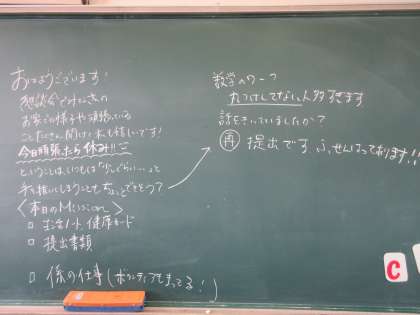 おはようございます!
懇談会でみなさんの
お家での様子や頑張っている
ことたくさん聞けて私も嬉しいです!
今日頑張ったら休み!!
ということは、いつもは「少しぐらい…」と
手を抜いてしまうことをちょっとできそう?
〈本日のMission〉
□ 生活ノート、健康カード
□ 提出書類
□ 係の仕事(ボランティアもまってる!)
数学のワーク
丸つけしてない人多すぎます
話をきいていましたか?
再 提出です。ふせんはっております!!
C